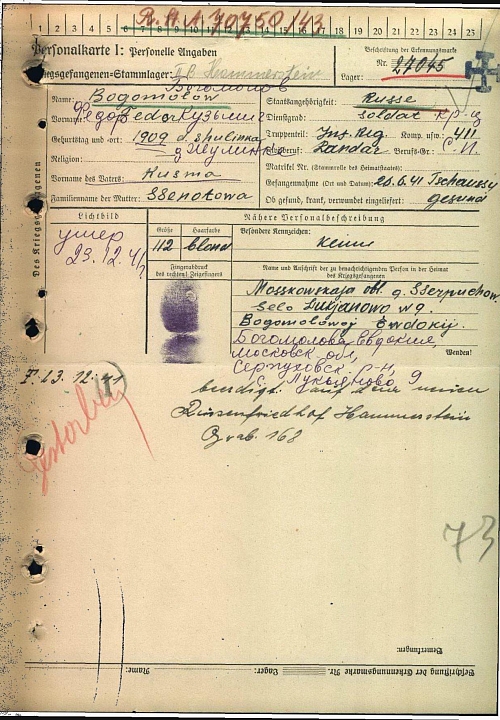 1 2 3 4 5 6 7 8 9 10 11 12 13 14 15 16 17 18 19 20 21 22 23 24 25
Personalkarte I: Personelle Angaben
Kriegsgefangenen-Stammlager: II B Hammerstein
Beschriftung der Erkennungsmarke
Nr. 27045
Lager:
Богомолов
Name: Bogomolow
Staatsangehörigkeit: Russe
Федор Кузьмич
Vorname: Fedor
Dienstgrad: Soldat кр-ц
Geburtstag und -ort: 1909 d. Shulinka
Truppenteil: Inf. Reg. Komp. usw.: 411
Religion:
Matrikel Nr. (Stammrolle des Heimatstaates):
Vorname des Vaters: Kusma
Gefangennahme (Ort und Datum): 25.6.41 Tschaussy
Familienname der Mutter: Ssenotowa
Ob gesund, krank, verwundet eingeliefert: gesund
Des Kriegsgefangenen
Lichtbild
Nähere Personalbeschreibung
Größe Haarfarbe
Besondere Kennzeichen:
умер
23.12.41
blond
Keine
Fingerabdruck
des rechten Zeigefingers
Name und Anschrift der zu benachrichtigenden Person in der Heimat
des Kriegsgefangenen
Moskowskaja obl. g. Sserpuchow
Selo Lukjanowo
Bogomolowoj Ewdokij
Богомолова Евдокия,
Московск. обл,
Серпуховск р-н,
с. Лукьяново 9
Wenden!
12
Gestorben
beerdigt auf dem neuen
Russenfriedhof Hammerstein
Grab. 168
73
Bemerkungen:
Beschriftung der Erkennungsmarke Nr.
Lager:
Name: